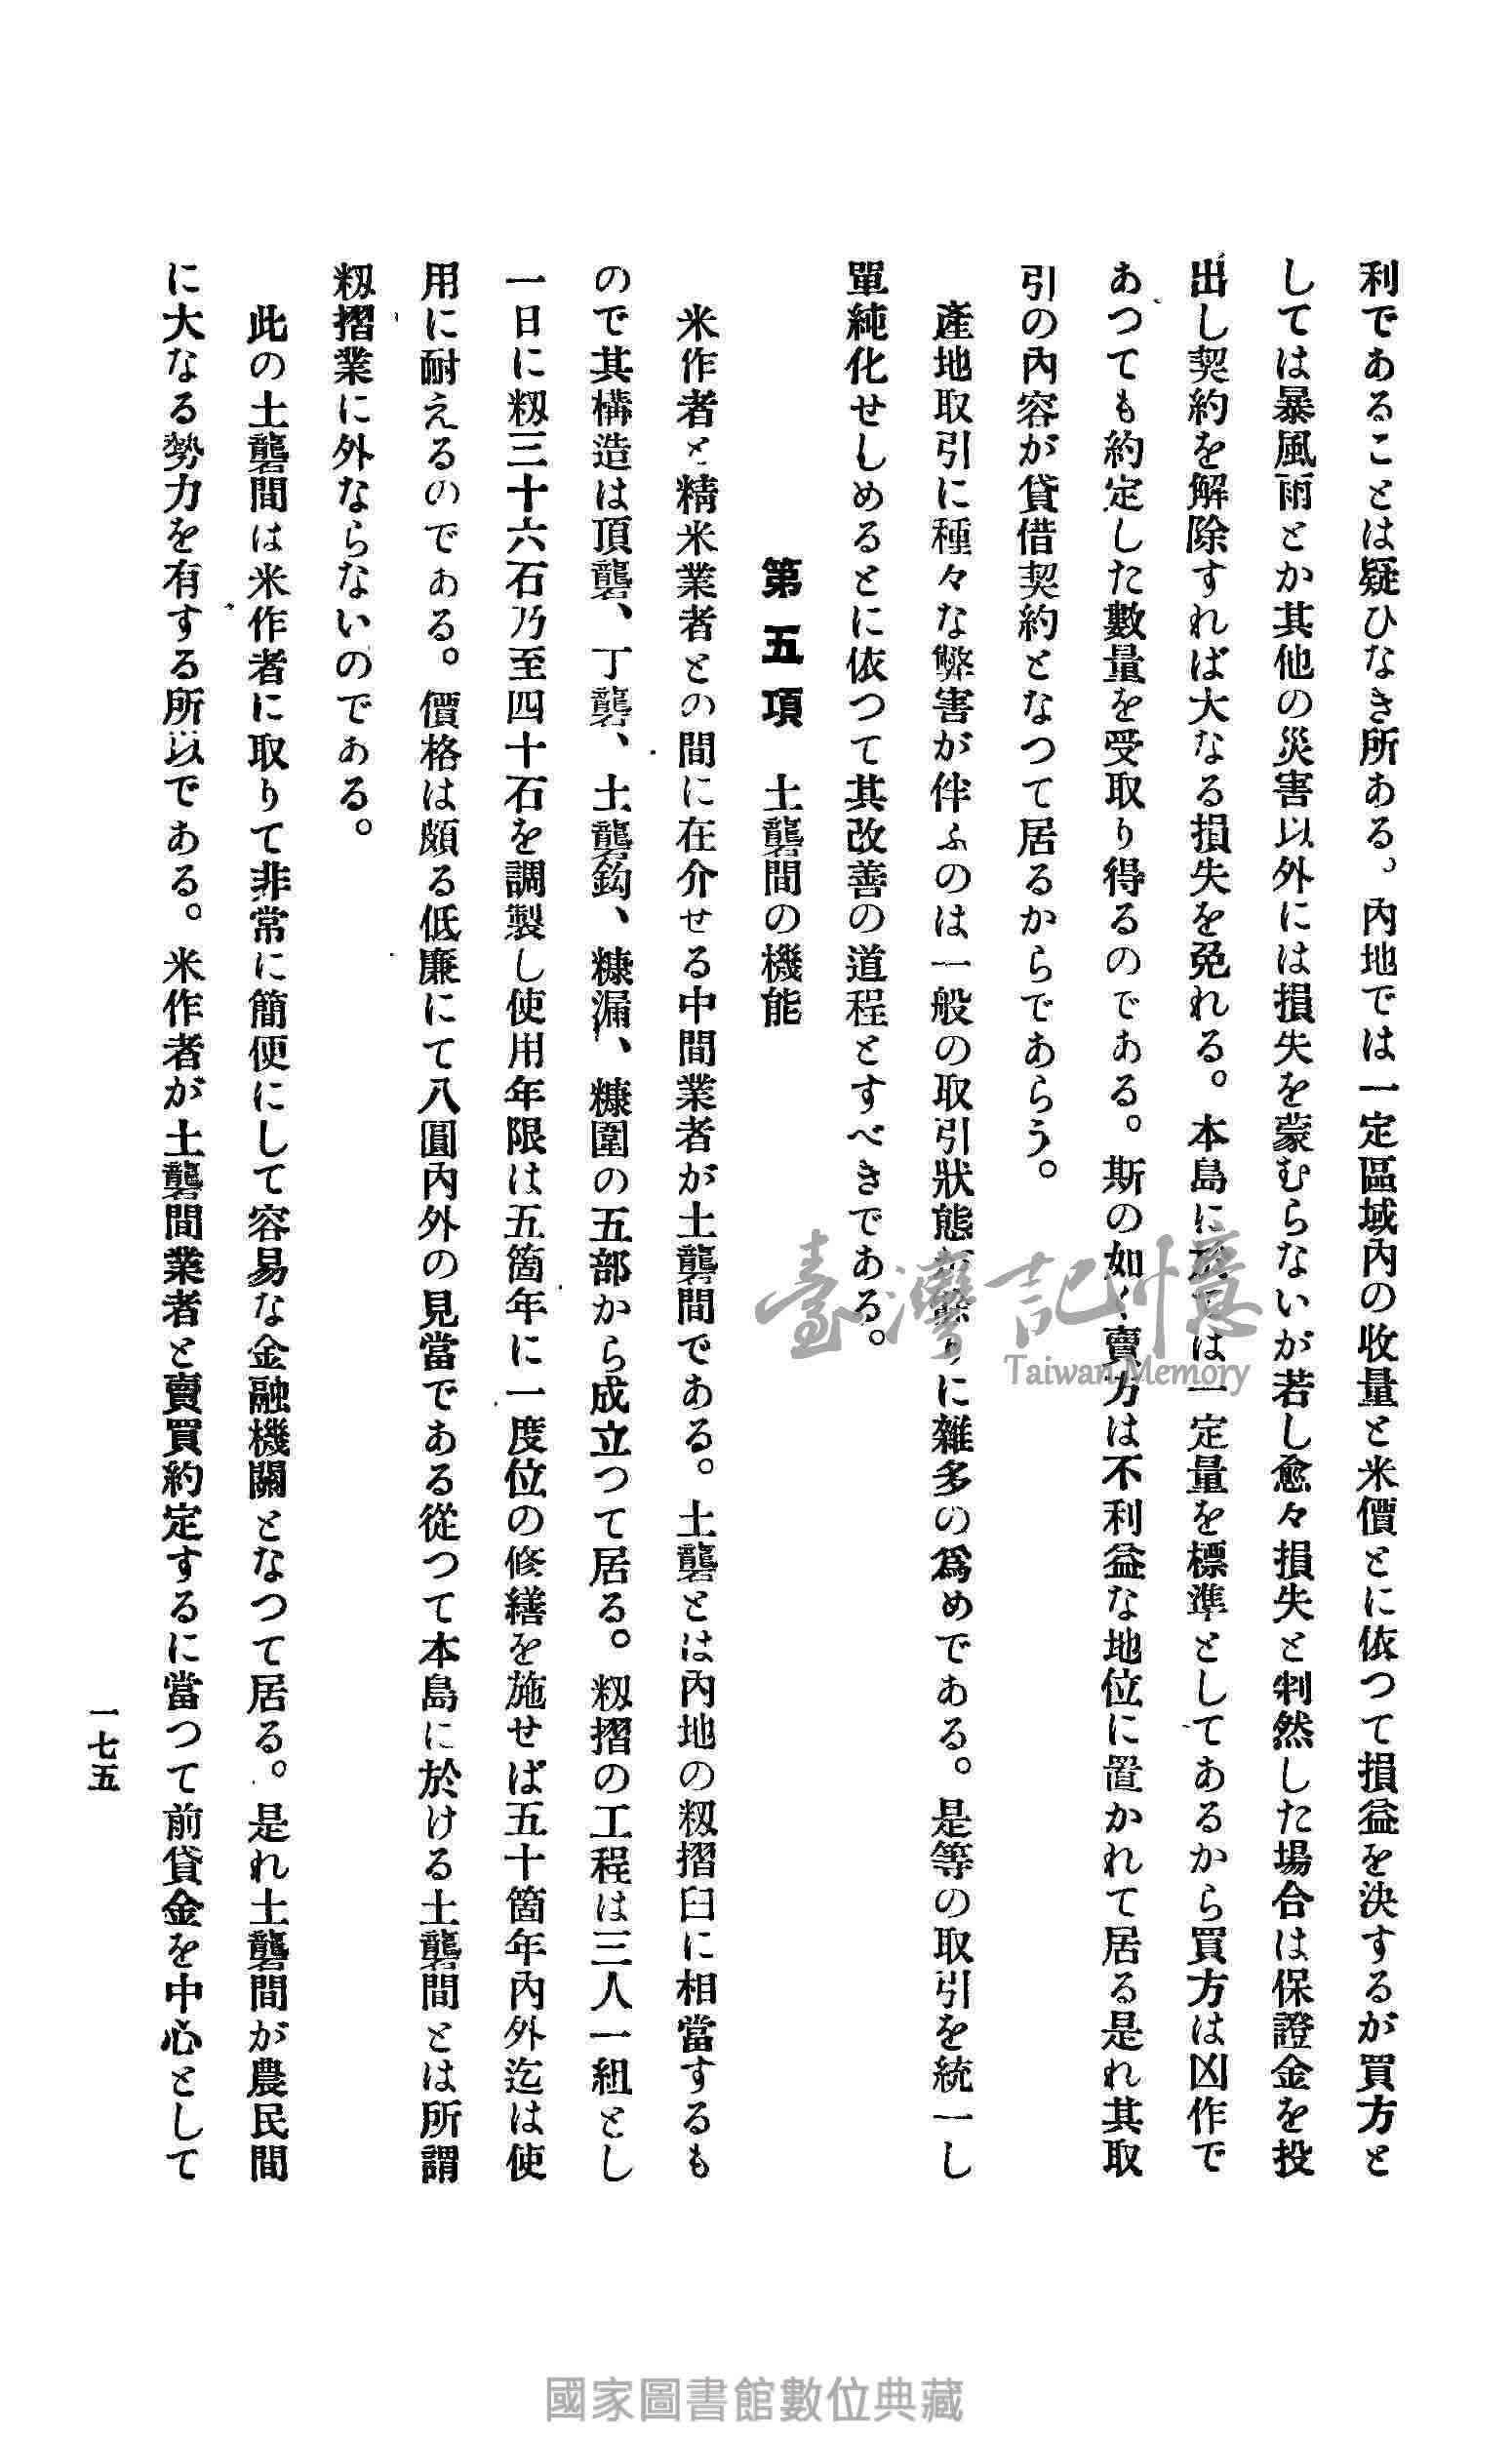 利であることは疑ひなき所ある。內地では一定區域內の收量と米價とに依つて損益を決するが買方と
しては暴風雨とか其他の災害以外には損失を蒙むらないが若し愈々損失と判然した場合は保證金を投
出し契約を解除すれば大なる損失を免れる。本島に於ては一定量を標準としてあるから買方は凶作で
あつても約定した數量を受取り得るのである。斯の如く賣方は不利益な地位に置かれて居る是れ其取
引の內容が貸借契約となつて居るからであらう。
產地取引に種々な弊害が伴ふのは一般の取引狀態が餘りに雜多の爲めである。是等の取引を統一し
單純化せしめるとに依つて其改善の道程とすべきである。
第五項 土礱間の機能
米作者と精米業者との間に在介せる中間業者が土礱間である。土礱とは內地の籾摺臼に相當するも
ので其構造は頂礱、丁礱、土礱鈎、糠漏、糠圍の五部から成立つて居る。籾摺の工程は三人一組とし
一日に籾三十六石乃至四十石を調製し使用年限は五箇年に一度位の修繕を施せば五十箇年內外迄は使
用に耐えるのである。價格は頗る低廉にて八圓內外の見當である從つて本島に於ける土礱間とは所謂
籾摺業に外ならないのである。
此の土礱間は米作者に取りて非常に簡便にして容易な金融機關となつて居る。是れ土礱間が農民間
に大なる勢力を有する所以である。米作者が土礱間業者と賣買約定するに當つて前貸金を中心として
一七五
臺灣記憶
Taiwan Memory
國家圖書館數位典藏